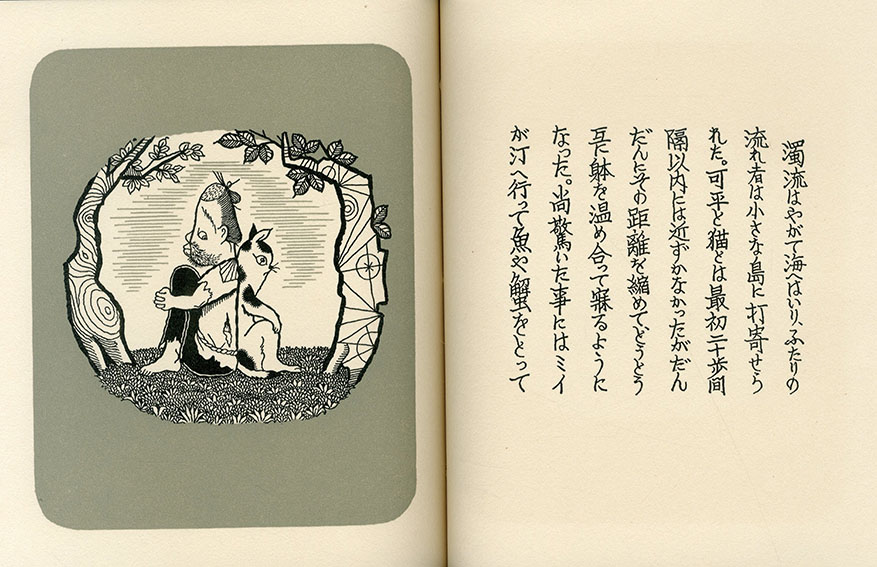 濁流はやがて海へはいり、ふたりの
流れ者は小さな島に打寄せら
れた。可平と猫とは最初二十歩間
隔以内には近ずかなかったがだん
だんにその距離を縮めてとうとう
互に躰を温め合って寐るように
なった。尚驚いた事にはミイ
が汀へ行って魚や蟹をとって